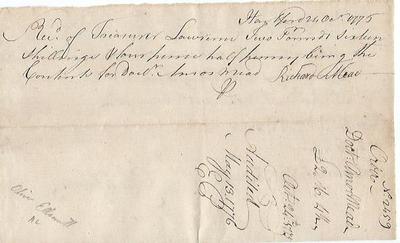 Hartford 24 Octr. 1775
Recd. of Treasurer Lawrence Two Pounds Sixteen
Shillings & four pence half penny being the
Contents for Doctr. Amos Mead
Richard Mead
Order No 2459
Doctr Amos Mead
£2.16.4½
Octr 24 1775
Audited
May 13, 1776